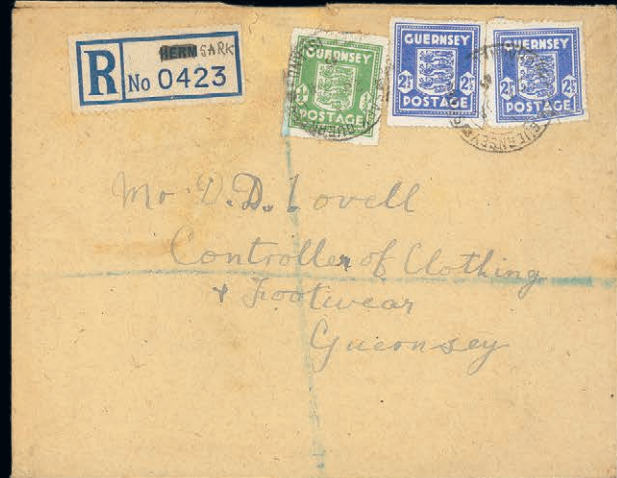 R HERM SARK
No 0423
GUERNSEY
½
POSTAGE
GUERNSEY
2½ 2½
POSTAGE
GUERNSEY
2½ 2½
POSTAGE
GUERNSEY
Mr. D. D. Lovell
Controller of Clothing
& Footwear
Guernsey